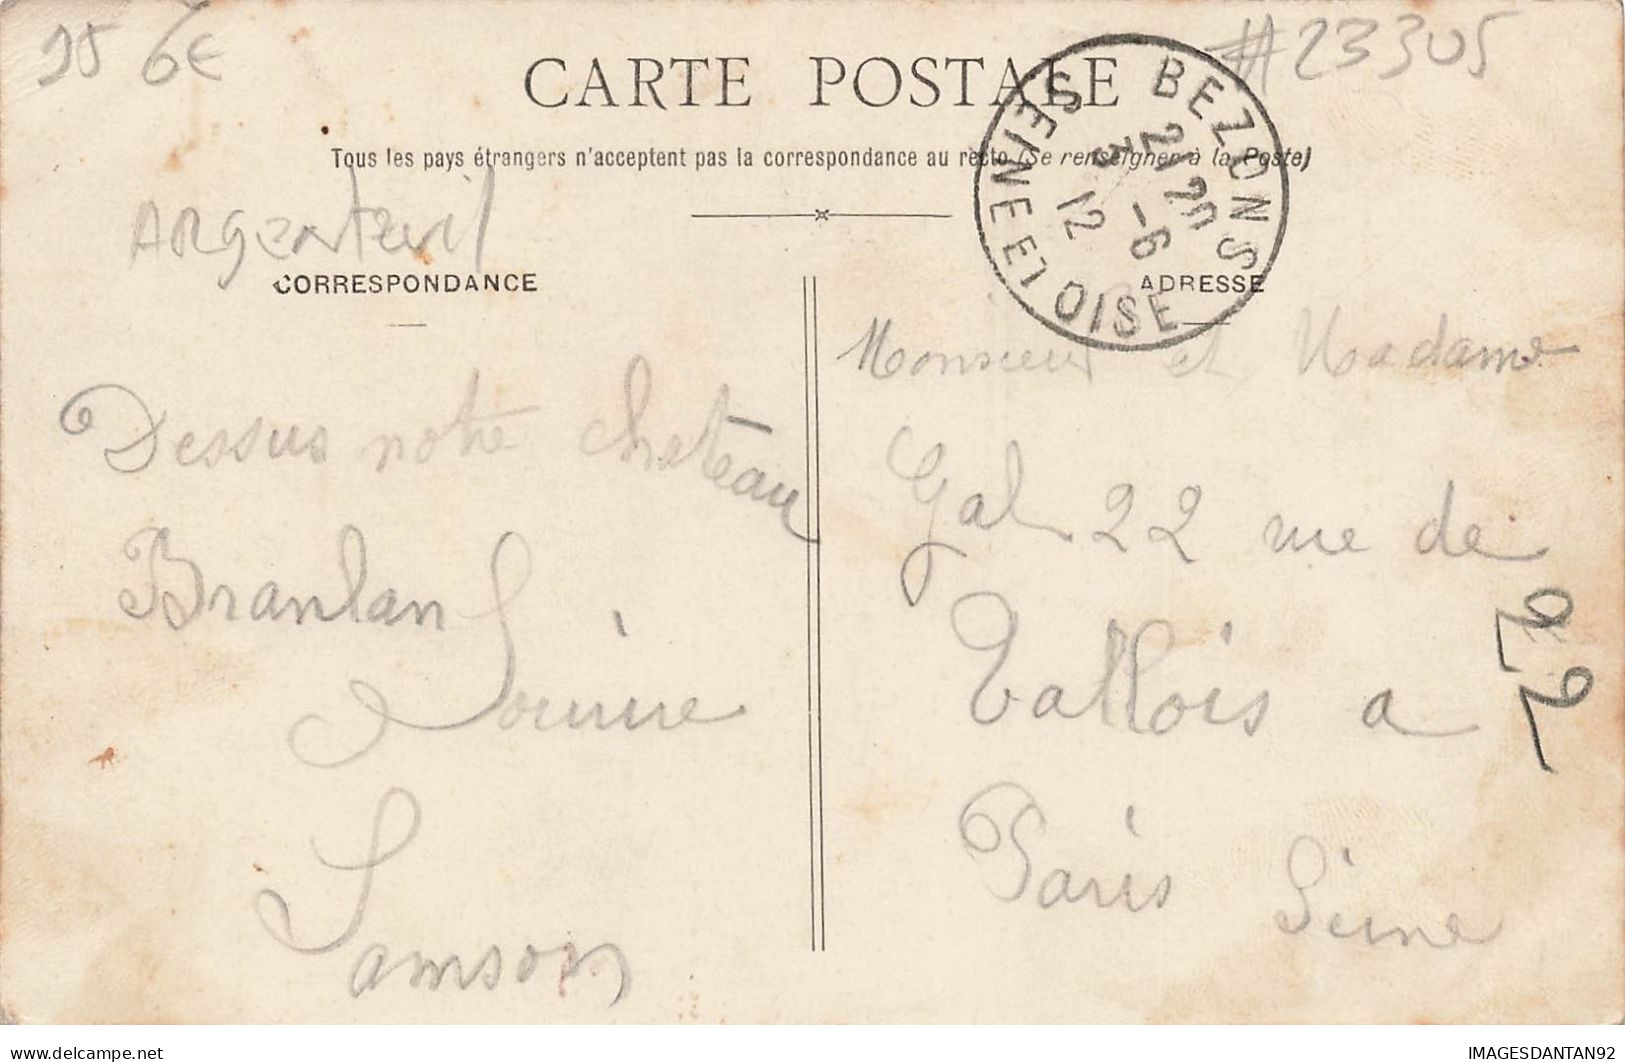 95 6€
#23305
CARTE POSTALE
Tous les pays étrangers n'acceptent pas la correspondance au recto (Se renseigner à la Poste)
BEZONS
SEINE ET OISE
21
3 - 6
12
ARGenteuil
CORRESPONDANCE
ADRESSE
Dessus notre chateau
Branlan
Samson
Monsieur et Madame
Gal 22 rue de
Vallois a
Paris Seine
22
www.delcampe.net
IMAGESDANTAN92